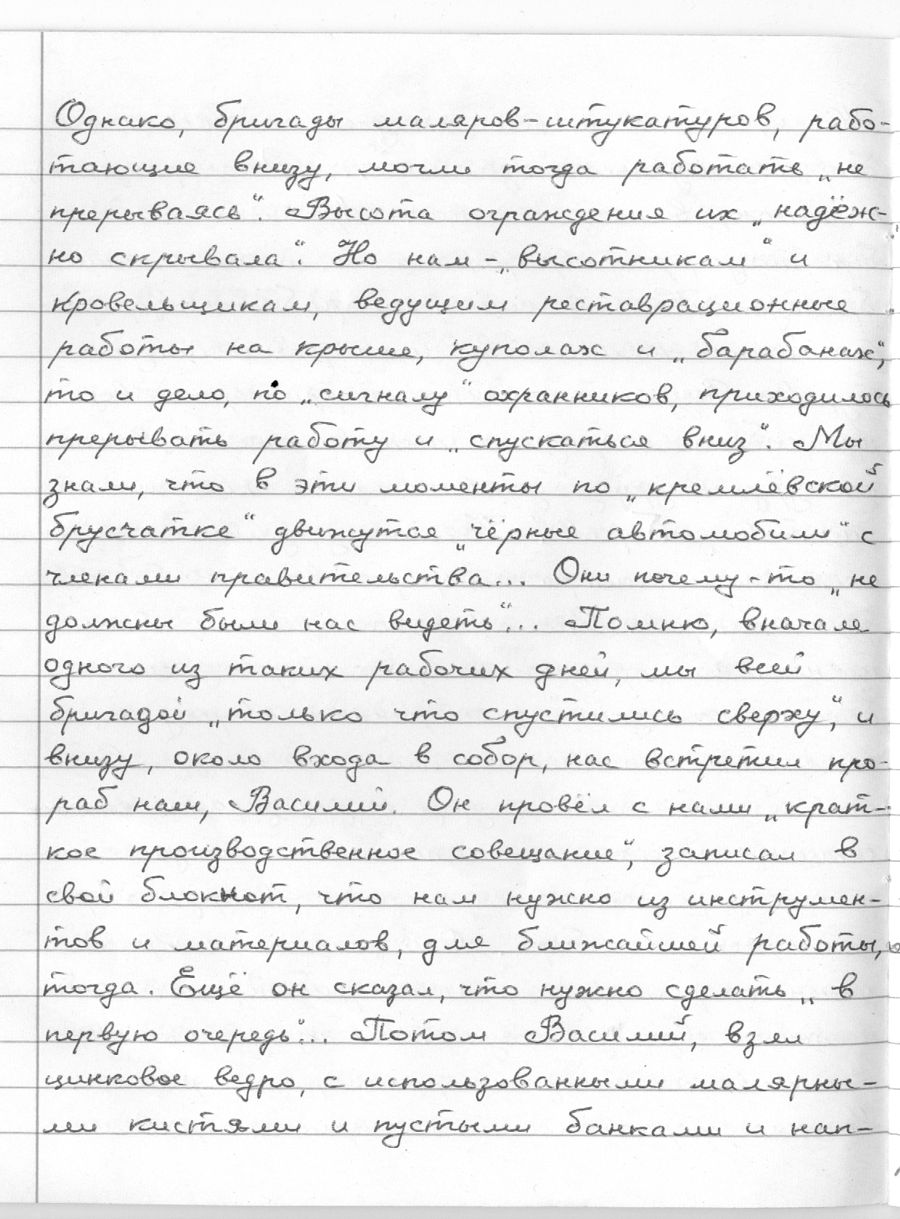 Однако, бригады маляров-штукатуров, рабо-
тающие внизу, могли тогда работать „не
прерываясь“. Высота ограждения их „надёж-
но скрывала“. Но нам - „высотникам“ и
кровельщикам, ведущим реставрационные
работы на крыше, куполах и „барабанах“,
то и дело, по „сигналу“ охранников, приходилось
прерывать работу и „спускаться вниз“. Мы
знали, что в эти моменты по „кремлёвской
брусчатке“ движутся „чёрные автомобили“ с
членами правительства... Они почему-то „не
должны были нас видеть“... Помню, вначале
одного из таких рабочих дней, мы всей
бригадой „только что спустились сверху“, и
внизу, около входа в собор, нас встретил про-
раб наш, Василий. Он провёл с нами „крат-
кое производственное совещание“, записал в
свой блокнот, что нам нужно из инструмен-
тов и материалов, для ближайшей работы,
тогда. Ещё он сказал, что нужно сделать „в
первую очередь“... Потом Василий, взял
цинковое ведро, с использованными малярны-
ми кистями и пустыми банками и нап-